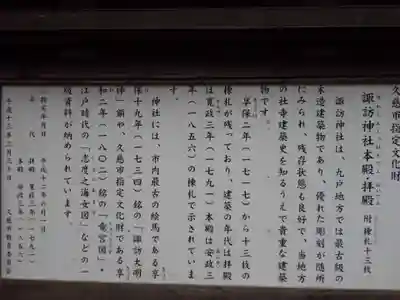 久慈市指定文化財
諏訪神社本殿・拝殿 附棟札十三枚
諏訪神社は、九戸地方では最古級の
木造建築物であり、優れた彫刻が随所
にみられ、残存状態も良好で、当地方
の社寺建築史を知るうえで貴重な建築
物です。
享保二年（一七一七）から十三枚の
棟札が残っており、建築の年代は拝殿
は寛政三年（一七九一）本殿は安政三
年（一八五六）の棟札で示されていま
す。
神社には、市内最古の絵馬である享
保十九年（一七三四）銘の「諏訪大明
神」額や、久慈市指定文化財である享
和二年（一八〇二）銘の「竜宮図」・
江戸時代の「志度之海女図」などの一
級資料が納められています。
指定年月日 平成十二年六月一日
年代 拝殿 寛政三年（一七九一）
本殿 安政三年（一八五六）
平成十三年三月三十日 久慈市教育委員会